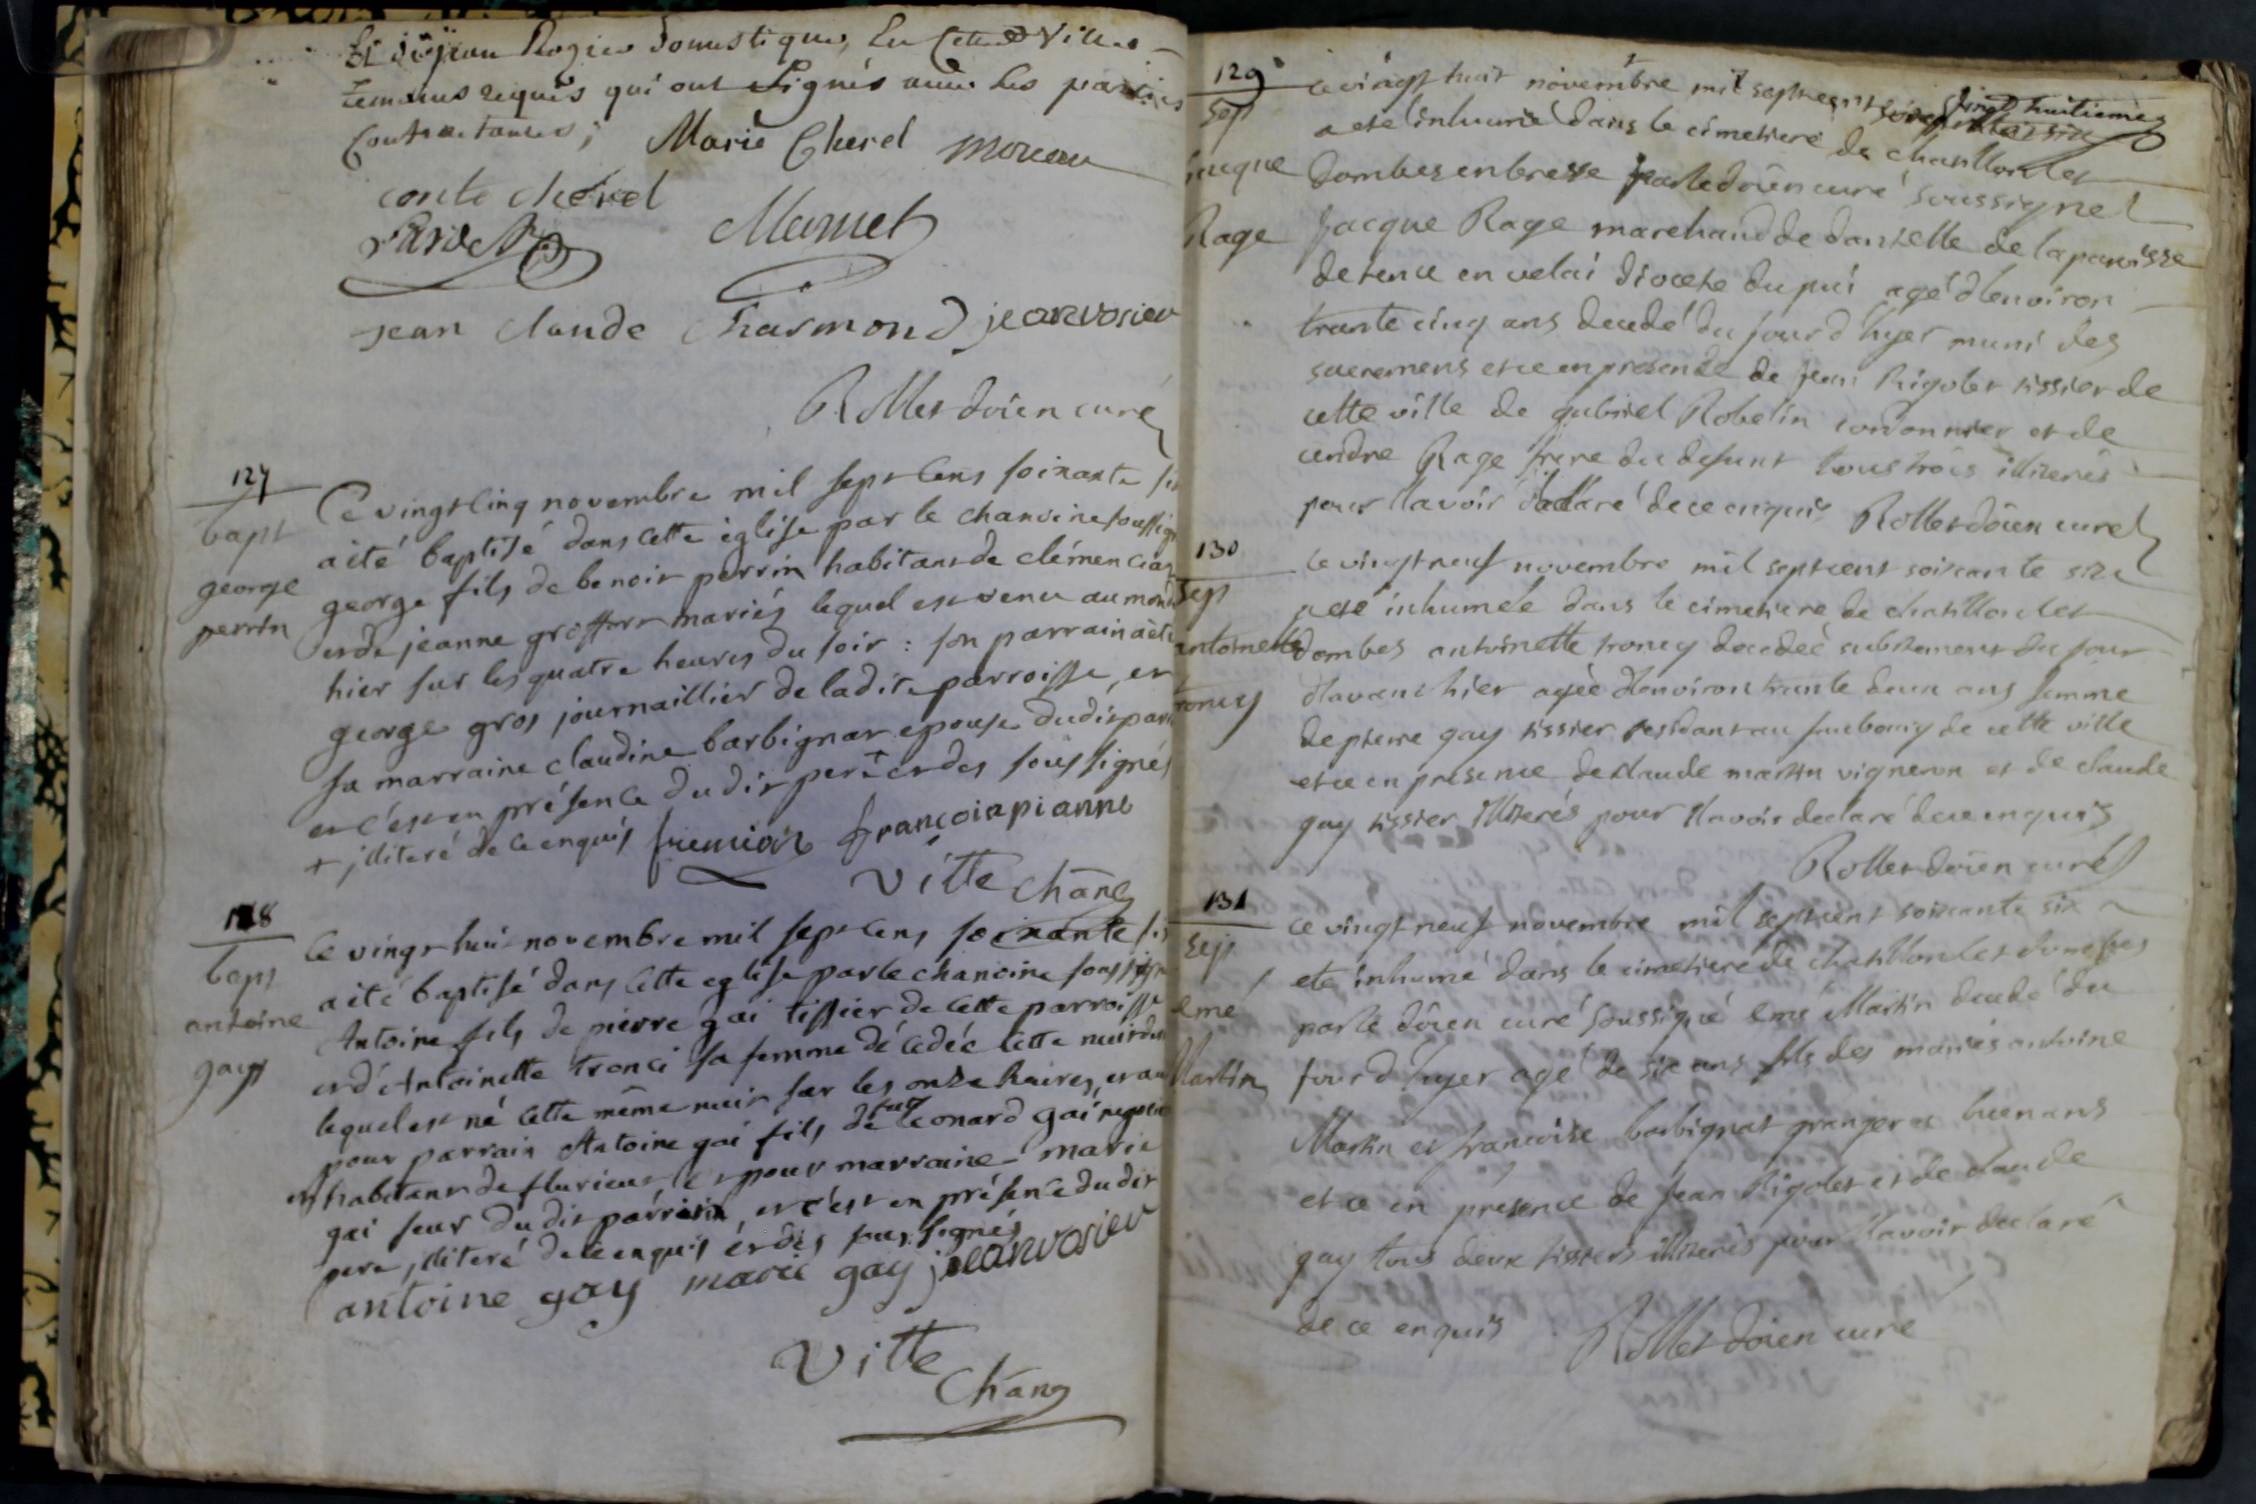 Et de jean Rogier domestique, en cette ville
temoins requis qui ont signés avec les parties
contractantes, Marie Cherel moreau
conte cherel
Mamet
jean claude Charmond jeanvosieu
Rollet doien curé
127
bapt
george
perrin
Ce vingt cinq novembre mil sept cens soixante six
a été baptisé dans cette église par le chanoine soussigné
george fils de benoit perrin habitant de clémencias
et de jeanne groffort mariés lequel est venu au monde
hier sur les quatre heures du soir : son parrain a été
george gros journaillier de ladite parroisse, et
sa marraine claudine barbignat epouse dudit
et c'est en présence du dit pere + et des soussignés
+ illiteré de ce enquis françois pianne
Vitte chãne
128
bapt
antoine
gay
Ce vingt huit novembre mil sept cens soixante six
a été baptisé dans cette eglise par le chanoine soussigné
Antoine fils de pierre gai tissier de cette parroisse
et d'Antoinette tronci sa femme décédée cette nuit
lequel est né cette même nuit sur les onze heures, et a eu
pour parrain Antoine gai fils de feu leonard gai
habitant de flurieux, et pour marraine marie
gai seur du dit parrain, et c'est en présence du dit
pere, illiteré de ce enquis, et des soussignés
antoine gay marie gay jeanvosieu
Vitte
Chãne
129
sep
jacque
Rage
ce vingt huit novembre mil sept cent vingt huitieme
a ete inhumé dans le cimetiere de chatillon les
Dombes en bresse par le doien curé soussigné
Jacque Rage marchand de dantelle de la paroisse
de tence en velai diocese du pui agé d'environ
trante cinq ans decedé du jour d'hyer muni des
sacremens et ce en presence de jean Rigolet tissier de
cette ville de gabriel Robelin cordonnier et de
andre Rage frere du defunt tous trois illiterés
pour l'avoir declaré de ce enquis Rollet doien curé
130
sep
antoinette
troncy
ce vingt neuf novembre mil sept cent soixante six
a eté inhumée dans le cimetiere de chatillon les
dombes antoinette troncy decedée subitement du jour
d'avant hier agée d'environ trante deux ans femme
de pierre gay tissier residant au faubourg de cette ville
et ce en presence de claude martin vigneron et de claude
gay tissier illiterés pour l'avoir declaré de ce enquis
Rollet doien curé
131
sep
emé
Martin
ce vingt neuf novembre mil sept cent soixante six a
ete inhumé dans le cimetiere de chatillon les dombes
par le doien curé soussigné emé Martin decedé du
jour d'hyer agé de six ans fils des mariés antoine
Martin et francoise barbignat granger
et ce en presence de jean Rigolet et de claude
gay tous deux tissiers illiterés pour l'avoir declaré
de ce enquis Rollet doien curé